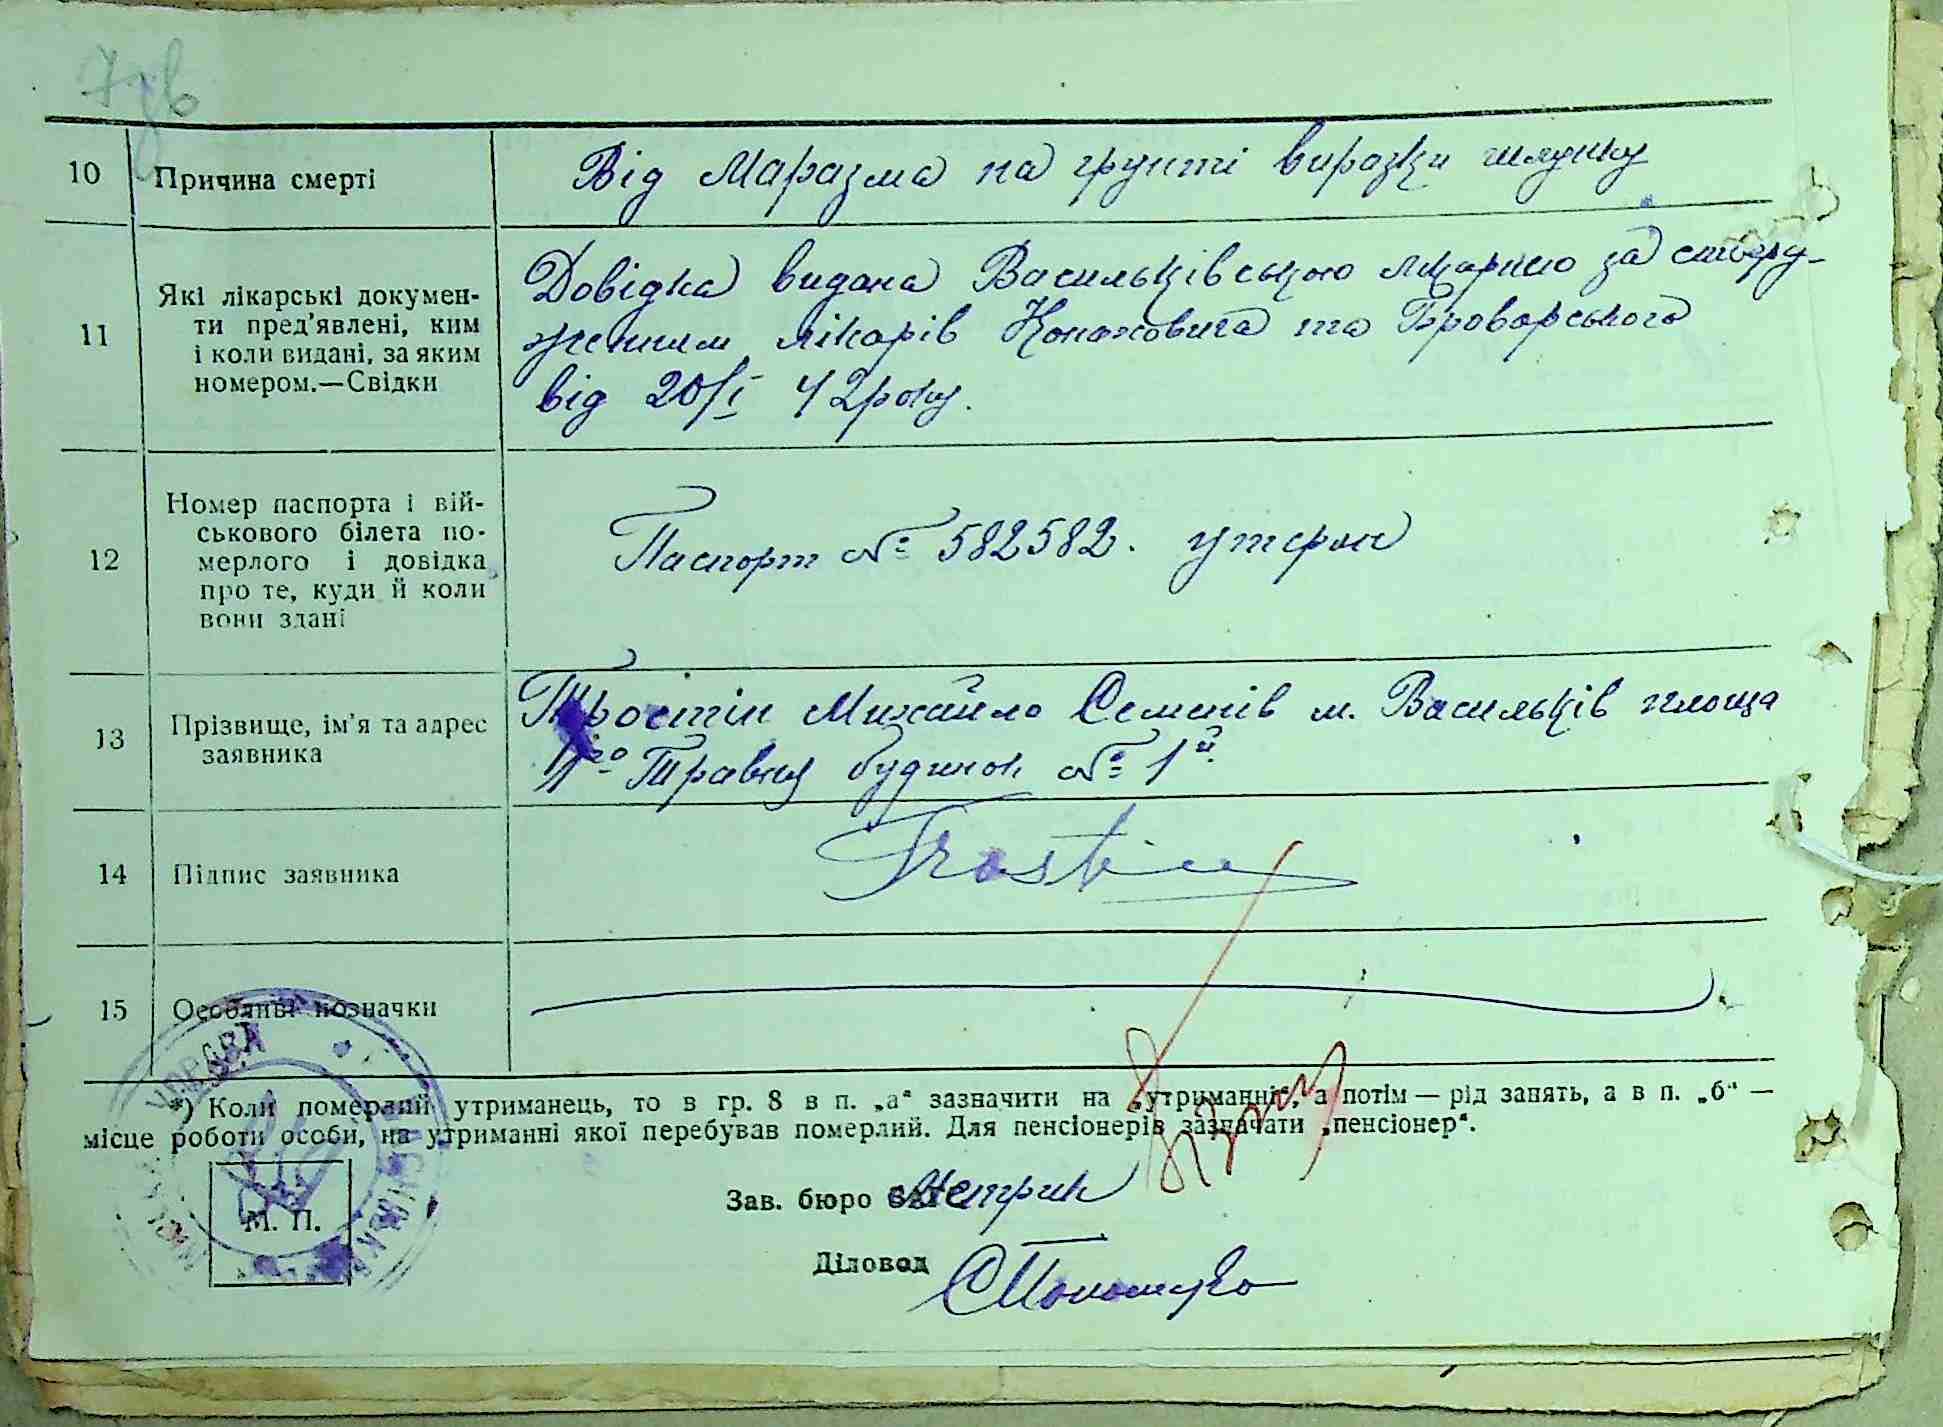 7зв
10 Причина смерті Від Маразма на грунті виразки шлунку
11 Які лікарські докумен-
ти пред'явлені, ким
і коли видані, за яким
номером.—Свідки
Довідка видана Васильківською лікарнею за стверд-
женням лікарів Кононовича та Броварського
від 20/I 42 року.
12 Номер паспорта і вій-
ськового білета по-
мерлого і довідка
про те, куди й коли
вони здані
Паспорт № 582582.
13 Прізвище, ім'я та адрес
заявника
Тростін Михайло Семенів м. Васильків площа
1го Травня будинок № 1й.
14 Підпис заявника Trostin
15 Особливі позначки
*) Коли померлий утриманець, то в гр. 8 в п. „а" зазначити на „утриманні", а потім — рід занять, а в п. „б" —
місце роботи особи, на утриманні якої перебував померлий. Для пенсіонерів зазначати „пенсіонер".
УПРАВА
М. П.
Зав. бюро ЗАГС
Діловод